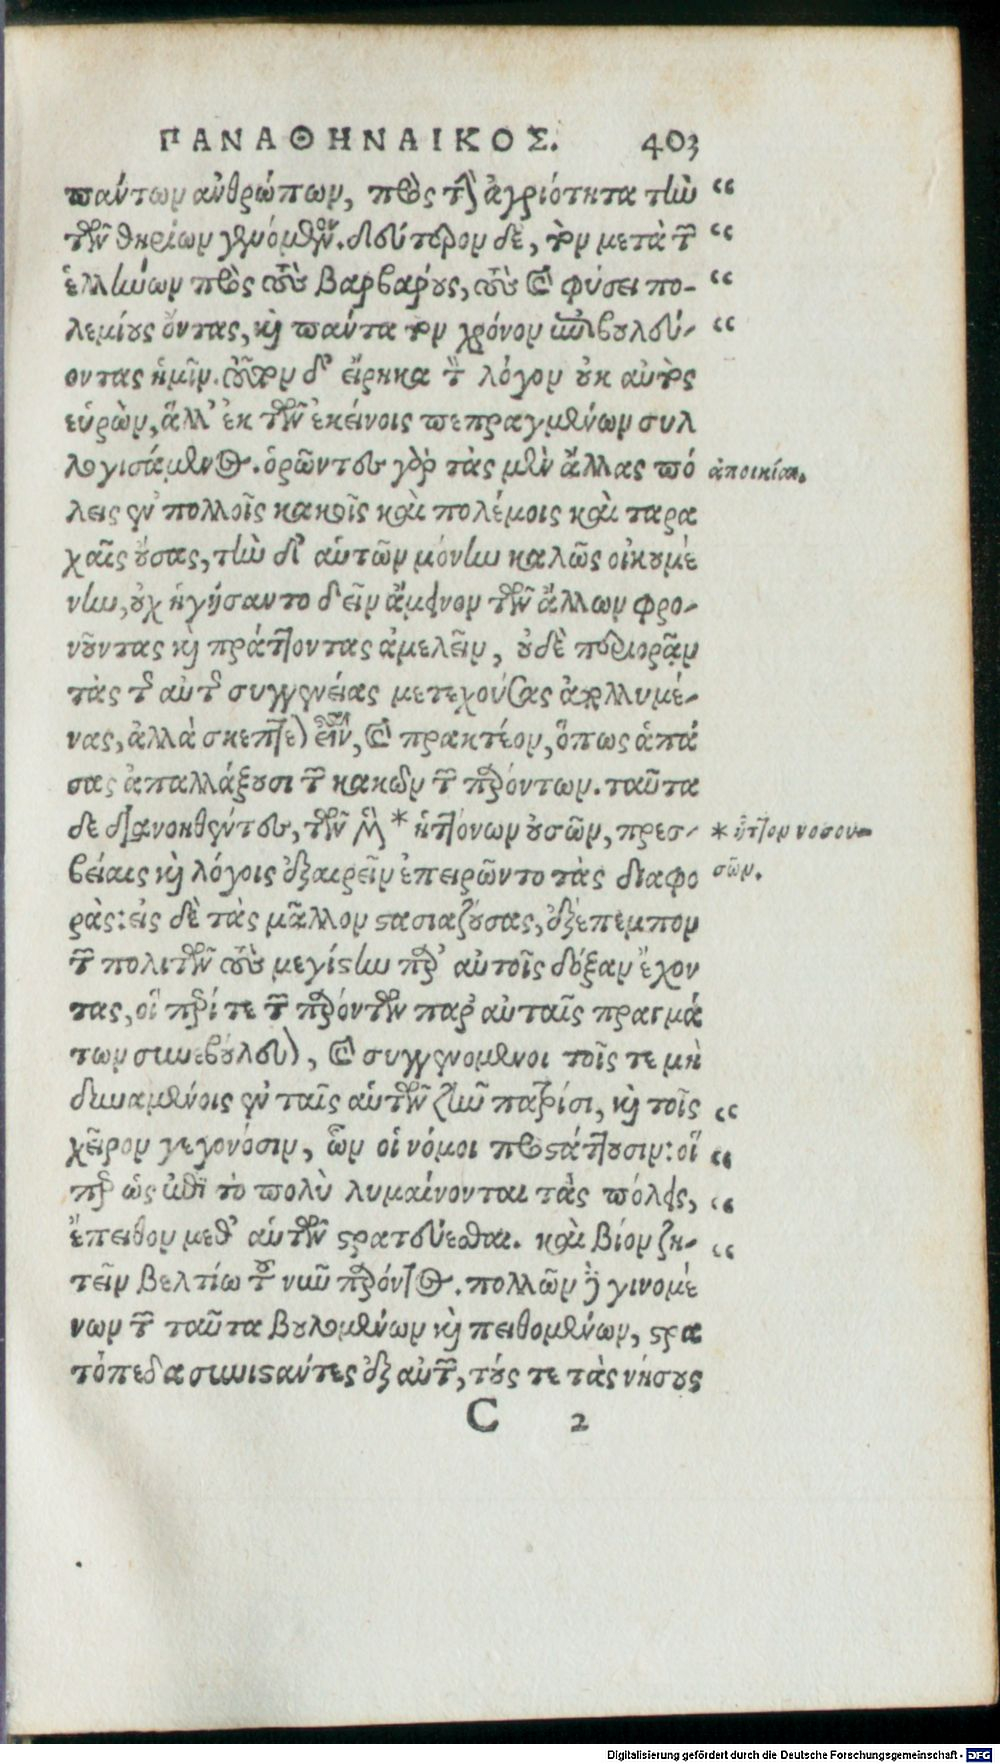 ΠΑΝΑΘΗΝΑΙΚΟΣ. 403
πάντων ἀνθρώπων, πρὸς τὴν ἀγριότητα τὴν “
τῶν θηρίων γενόμενον. δεύτερον δὲ, τὸν μετὰ τῶν “
ἑλλήνων πρὸς τοὺς βαρβάρους, τοὺς καὶ φύσει πο- “
λεμίους ὄντας, καὶ πάντα τὸν χρόνον ἐπιβουλεύ- “
οντας ἡμῖν. τοῦτον δ' εἴρηκα τὸν λόγον οὐκ αὐτὸς
εὑρὼν, ἀλλ' ἐκ τῶν ἐκείνοις πεπραγμένων συλ
λογισάμενος. ὁρῶντες γὰρ τὰς μὲν ἄλλας πό ἀποικίαι.
λεις ἐν πολλοῖς κακοῖς καὶ πολέμοις καὶ ταρα
χαῖς οὔσας, τὴν δ' αὑτῶν μόνην καλῶς οἰκουμέ
νην, οὐχ ἡγήσαντο δεῖν ἄμεινον τῶν ἄλλων φρο-
νοῦντας καὶ πράττοντας ἀμελεῖν, οὐδὲ περιορᾷν
τὰς τῆς αὐτῆς συγγενείας μετεχούσας ἀπολλυμέ-
νας, ἀλλὰ σκεπτέον εἶναι, καὶ πρακτέον, ὅπως ἁπά
σας ἀπαλλάξουσι τῶν κακῶν τῶν παρόντων. ταῦτα
δὲ διανοηθέντες, τῶν μὲν * ἡττόνων οὐσῶν, πρεσ- * ἧττον νοσου-
βείαις καὶ λόγοις ἐξαιρεῖν ἐπειρῶντο τὰς διαφο σῶν.
ράς: εἰς δὲ τὰς μᾶλλον στασιαζούσας, ἐξέπεμπον
τῶν πολιτῶν τοὺς μεγίστην παρ' αὐτοῖς δόξαν ἔχον
τας, οἳ περί τε τῶν παρόντων παρ' αὐταῖς πραγμά
των συνεβούλευον, καὶ συγγενόμενοι τοῖς τε μὴ
δυναμένοις ἐν ταῖς αὑτῶν ζῆν πατρίσι, καὶ τοῖς “
χεῖρον γεγονόσιν, ὧν οἱ νόμοι προστάττουσιν: οἵ “
περ ὡς ἐπὶ τὸ πολὺ λυμαίνονται τὰς πόλεις, “
ἔπειθον μεθ' αὑτῶν στρατεύεσθαι. καὶ βίον ζη- “
τεῖν βελτίω τοῦ νῦν παρόντος. πολλῶν δὲ γινομέ
νων τῶν ταῦτα βουλομένων καὶ πειθομένων, στρα
τόπεδα συνιστάντες ἐξ αὐτῶν, τούς τε τὰς νήσους
C 2
Digitalisierung gefördert durch die Deutsche Forschungsgemeinschaft - DFG